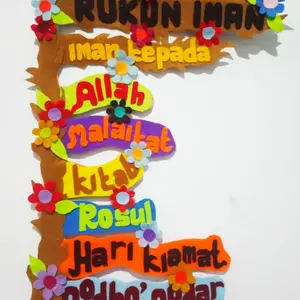 RUKUN IMAN
Iman kepada
Allah
Malaikat
Kitab
Rosul
Hari kiamat
qodho' qodar